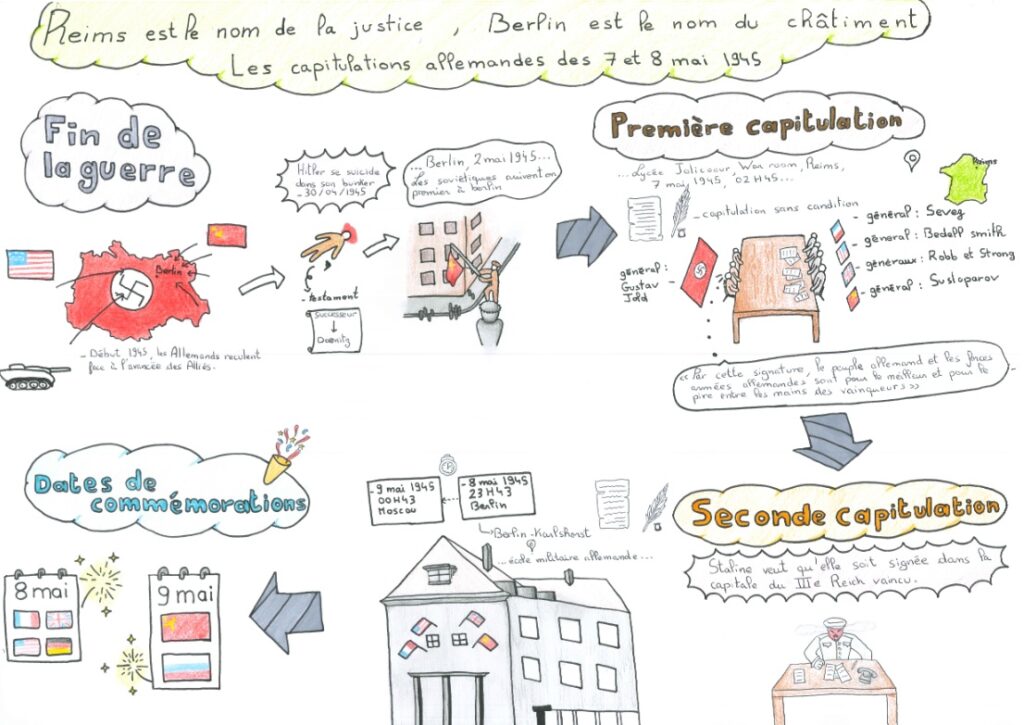 Reims est le nom de la justice , Berlin est le nom du châtiment
Les capitulations allemandes des 7 et 8 mai 1945
Fin de
la guerre
Berlin
- Début 1945, les Allemands reculent
face à l'avancée des Alliés.
Hitler se suicide
dans son bunker
- 30/04/1945
- testament
successeur
Doenitz
... Berlin, 2 mai 1945...
Les soviétiques arrivent en
premier à berlin
Première capitulation
...Lycée Jolicoeur, War room, Reims,
7 mai 1945, 02H45...
Reims
- capitulation sans condition
général :
Gustav
Jold
- général : Sevez
- général : Bedell smith
- généraux : Robb et Strong
- général : Susloparov
« Par cette signature, le peuple allemand et les forces
armées allemandes sont pour le meilleur et pour le
pire entre les mains des vainqueurs »
Seconde capitulation
Staline veut qu'elle soit signée dans la
capitale du IIIe Reich vaincu.
- 9 mai 1945
00H43
Moscou
- 8 mai 1945
23H43
Berlin
Berlin-Karlshorst
...école militaire allemande...
Dates de
commémorations
8 mai
9 mai